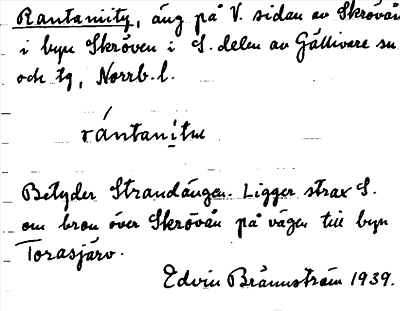 Rantaniity, äng på V. sidan av Skrövån
i byn Skröven i S. delen av Gällivare sn
och tg, Norrb. l.
rántanịtu
Betyder Strandängen. Ligger strax S.
om bron över Skrövån på vägen till byn
Torasjärv.
Edvin Brännström 1939.